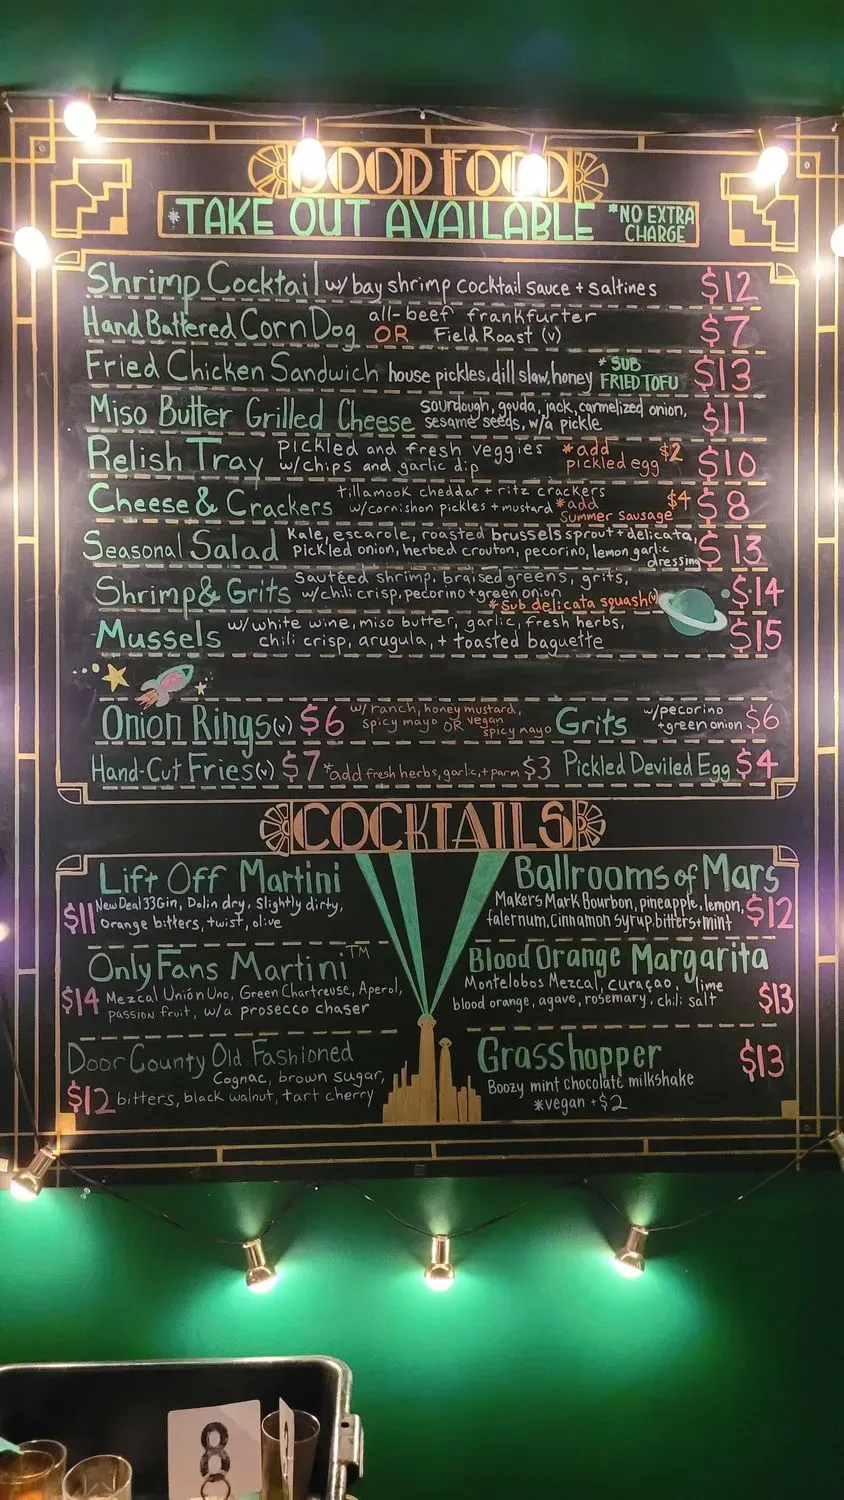 GOOD FOOD
*TAKE OUT AVAILABLE *NO EXTRA CHARGE
Shrimp Cocktail w/ bay shrimp cocktail sauce + saltines $12
Hand Battered Corn Dog all-beef frankfurter OR Field Roast (v) $7
Fried Chicken Sandwich house pickles, dill slaw, honey *SUB FRIED TOFU $13
Miso Butter Grilled Cheese sourdough, gouda, jack, carmelized onion, sesame seeds, w/a pickle $11
Relish Tray Pickled and fresh veggies w/chips and garlic dip *add pickled egg $2 $10
Cheese & Crackers tillamook cheddar + ritz crackers w/cornishon pickles + mustard *add Summer sausage $4 $8
Seasonal Salad Kale, escarole, roasted brussels sprout + delicata, Pickled onion, herbed crouton, pecorino, lemon garlic dressing $13
Shrimp & Grits Sautéed shrimp, braised greens, grits, w/chili crisp, pecorino + green onion *Sub delicata squash (v) $14
Mussels w/white wine, miso butter, garlic, fresh herbs, chili crisp, arugula, + toasted baguette $15
Onion Rings (v) $6 w/ranch, honey mustard, spicy mayo OR vegan spicy mayo Grits w/pecorino +green onion $6
Hand-Cut Fries (v) $7 *add fresh herbs, garlic, + parm $3 Pickled Deviled Egg $4
COCKTAILS
Lift Off Martini
$11 New Deal 33 Gin, Dolin dry, Slightly dirty,
Orange bitters, twist, olive
Only Fans Martini™
$14 Mezcal Unión Uno, Green Chartreuse, Aperol,
passion fruit, w/a prosecco chaser
Door County Old Fashioned
Cognac, brown sugar,
$12 bitters, black walnut, tart cherry
Ballrooms of Mars
Makers Mark Bourbon, pineapple, lemon,
falernum, Cinnamon syrup, bitters + mint $12
Blood Orange Margarita
Montelobos Mezcal, curaçao, lime
blood orange, agave, rosemary, chili salt $13
Grasshopper $13
Boozy mint chocolate milkshake
*vegan +$2
8